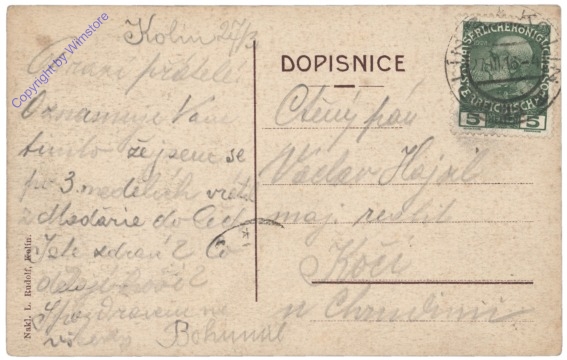 Copyright by Wimstore
Kolín 27/3
Drazí přátelé!
Oznamuji Vám
tímto že jsme se
po 3. nedělích vrátil
z Maďarie do Čech
Jste zdraví? Co
dělají hoši?
S pozdravem na
všecky Bohumil
Nakl. L. Rudolf, Kolín.
DOPISNICE
Ctěný pán
Václav Hajal
maj. realit
Kočí
u Chrudimi
KAISERLICHE KÖNIGLICHE
ÖSTERREICHISCHE POST
5 5